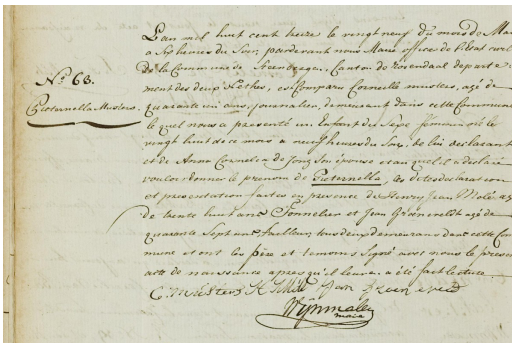 N.º 63.
Pieternella Musters.
L'an mil huit cent treize le vingt neuf du mois de Mai
a Six heures du Soir, pardevant nous Maire officier de l'etat civil
de la Commune de Steenbergen, Canton de Rosendaal departe
ment des deux Nethes, est Comparu Corneille Musters, agé de
quarante un ans, journalier, demeurant dans cette Commune
le quel nous a presenté un Enfant du Sexe feminin né le
vingt huit de ce mois a neuf heures du Soir, de lui declarant
et de Anna Cornelia de Jong Son épouse et auquel il a déclaré
vouloir donner le prenom de Pieternella, les dites declaration
et presentation faites en presence de Henry Jean Molé agé
de trente huit ans Tonnelier et Jean Groeneveld agé de
quarante Sept ans tous deux demeurans dans cette Com
mune et ont les père et temoins Signé avec nous le present
acte de naissance apres qu'il leur a été fait lecture.
C. Musters H J Molé Jan Groeneveld
maire